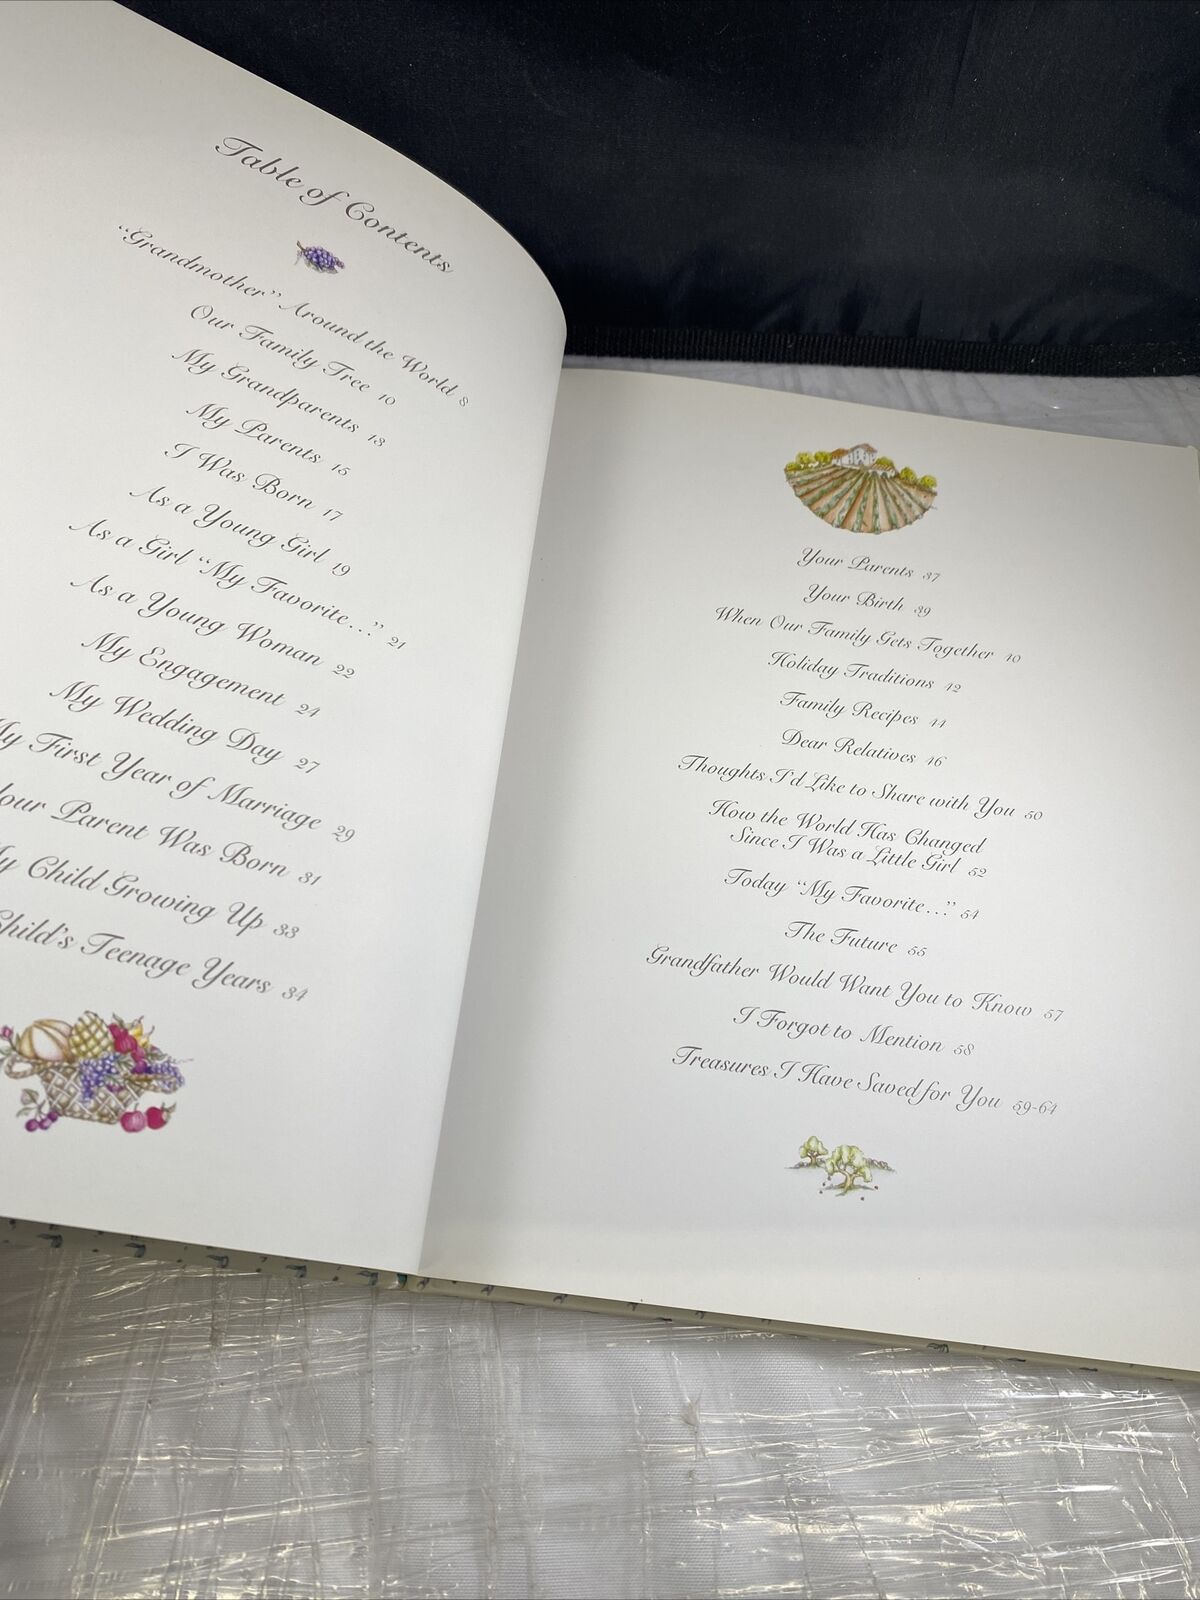 Table of Contents
"Grandmother" Around the World 8
Our Family Tree 10
My Grandparents 13
My Parents 15
I Was Born 17
As a Young Girl 19
As a Girl "My Favorite..." 21
As a Young Woman 22
My Engagement 24
My Wedding Day 27
My First Year of Marriage 29
Your Parent Was Born 31
My Child Growing Up 33
Child's Teenage Years 34
Your Parents 37
Your Birth 39
When Our Family Gets Together 40
Holiday Traditions 42
Family Recipes 44
Dear Relatives 46
Thoughts I'd Like to Share with You 50
How the World Has Changed
Since I Was a Little Girl 52
Today "My Favorite..." 54
The Future 55
Grandfather Would Want You to Know 57
I Forgot to Mention 58
Treasures I Have Saved for You 59-64